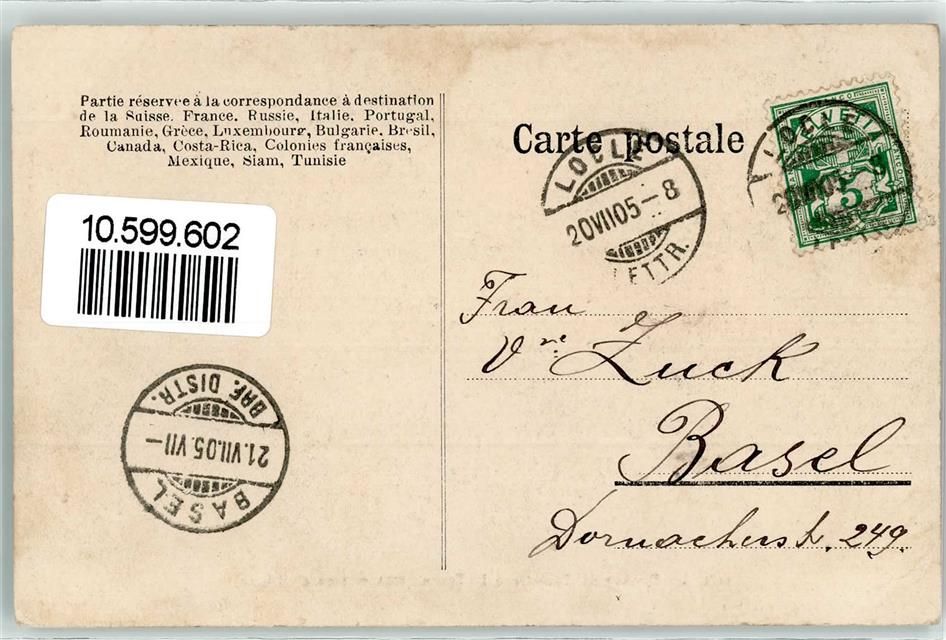 Partie réservée à la correspondance à destination
de la Suisse. France. Russie, Italie, Portugal,
Roumanie, Grèce, Luxembourg, Bulgarie. Brésil,
Canada, Costa-Rica, Colonies françaises,
Mexique, Siam, Tunisie
10.599.602
Carte postale
LOCLE
20 VII 05 – 8
LETTR.
LOCLE
HELVETIA
FRANCO
5
BASEL
21.VII.05.VII –
BRF. DISTR.
Frau
Vve Zuck
Basel
Dornacherstr. 249.